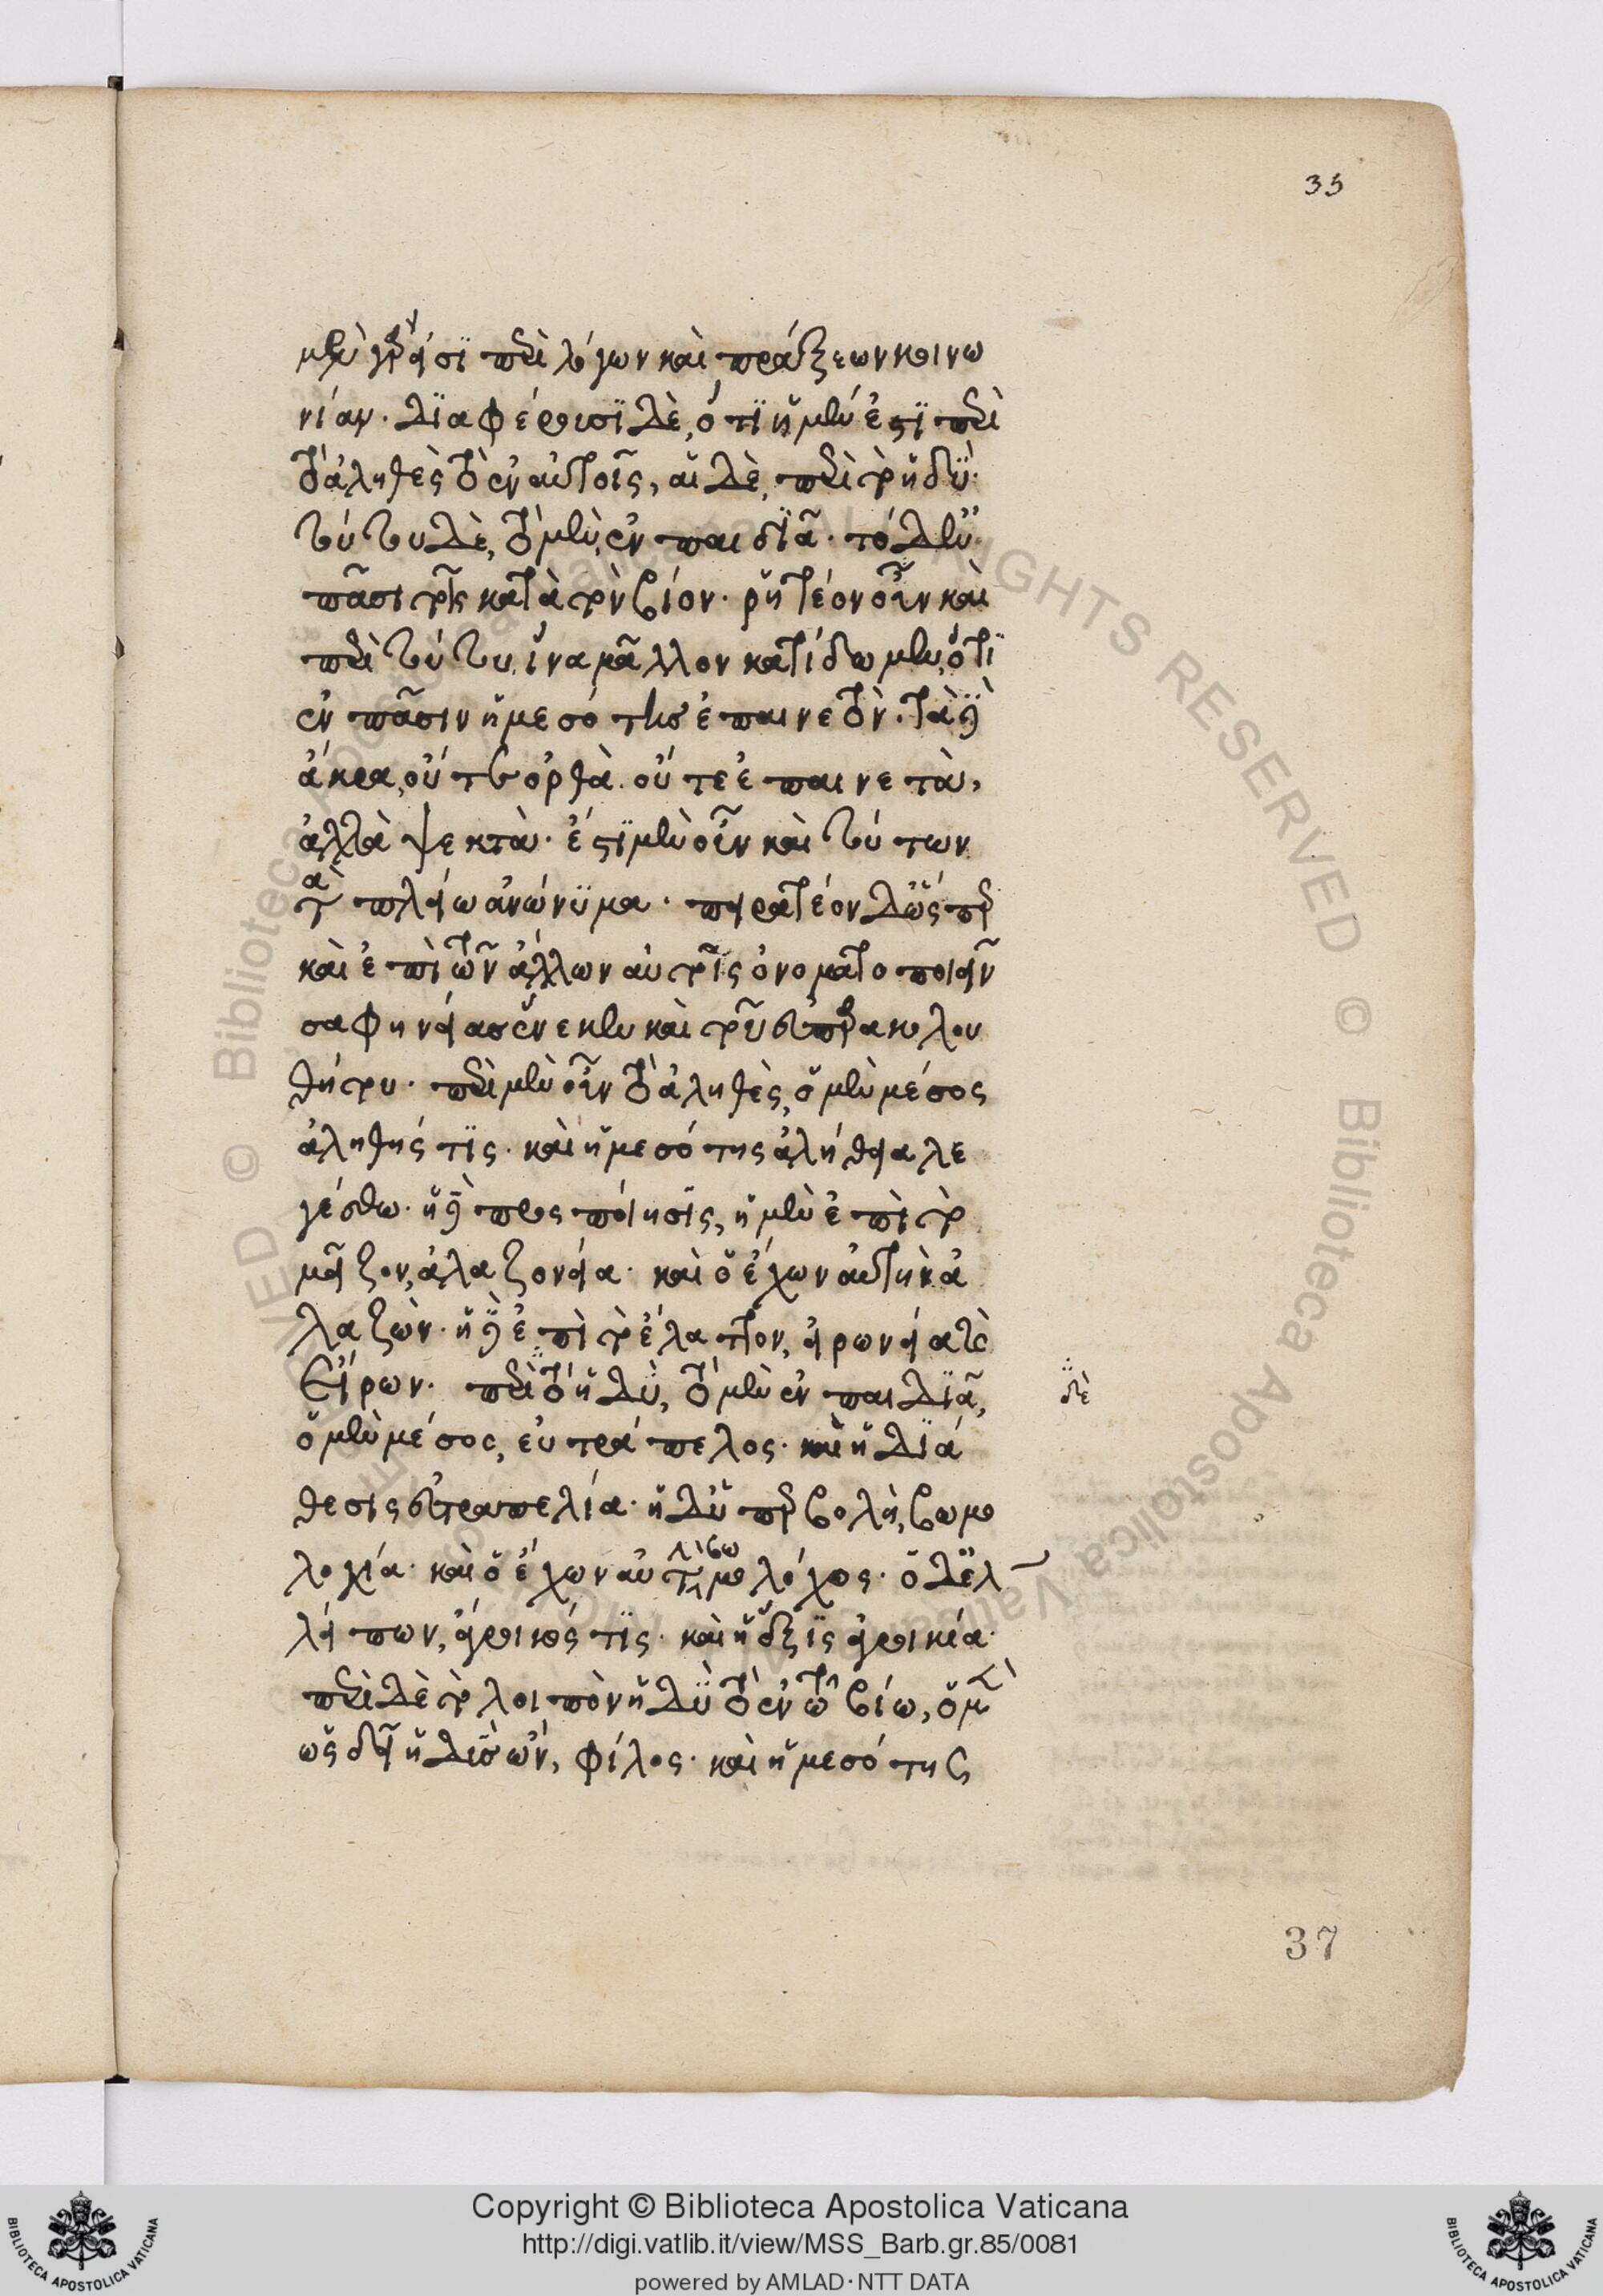 35
μὲν γάρ εἰσϊ περὶ λόγων καὶ πράξεων κοινω
νίαν. Διαφέρουσϊ Δὲ, ὅτϊ ἡ μὲν ἐστϊ περὶ
τὸ ἀληθὲς τὸ ἐν αὐτοῖς, αἱ Δὲ, περὶ τὸ ἡδΰ.
τούτου Δὲ, τὸ μὲν, ἐν παιδϊᾶ. τὸ Δ' ἐν
πᾶσι τοῖς κατὰ τὸν βίον. ῥητέον οὖν καὶ
περὶ τούτου, ἵνα μᾶλλον κατίδωμεν, ὅτϊ
ἐν πᾶσιν ἡ μεσότης ἐπαινετὸν. τὰ δὲ
ἄκρα, οὔτ' ὀρθὰ. οὔτε ἐπαινετὰ,
ἀλλὰ ψεκτὰ. ἔστϊ μὲν οὖν καὶ τούτων
τὰ πλείω ἀνώνϋμα. πειρατέον Δ' ὥσπερ
καὶ ἐπὶ τῶν ἄλλων αὐτοῖς ὀνοματοποιεῖν
σαφηνείας ἕνεκεν καὶ τοῦ εὐπαρακολου
θήτου. περὶ μὲν οὖν τὸ ἀληθὲς, ὁ μὲν μέσος
ἀληθής τϊς. καὶ ἡ μεσότης ἀλήθεια λε
γέσθω. ἡ δὲ προσποίησϊς, ἡ μὲν ἐπὶ τὸ
μεῖζον, ἀλαζονεία. καὶ ὁ ἔχων αὐτὴν ἀ
λαζὼν. ἡ δὲ ἐπὶ τὸ ἔλαττον, εἰρωνεία καὶ
εἴρων. περὶ τὸ ἡΔὺ, τὸ μὲν ἐν παιΔϊᾶ,
δὲ
ὁ μὲν μέσος, εὐτράπελος. καὶ ἡ Διά
θεσις εὐτραπελία. ἡ Δ' ὑπερβολὴ, βωμο
λοχία. καὶ ὁ ἔχων αὐτὴν βωμολόχος. ὁ Δ' ἐλ
λείπων, ἄγροικός τϊς. καὶ ἡ ἕξϊς ἀγροικία.
περὶ Δὲ τὸ λοιπὸν ἡΔὺ τὸ ἐν τῶ βίω, ὁ μὲν
ὡς δεῖ ἡΔὺς ὢν, φίλος. καὶ ἡ μεσότης
37
Copyright © Biblioteca Apostolica Vaticana
http://digi.vatlib.it/view/MSS_Barb.gr.85/0081
powered by AMLAD·NTT DATA